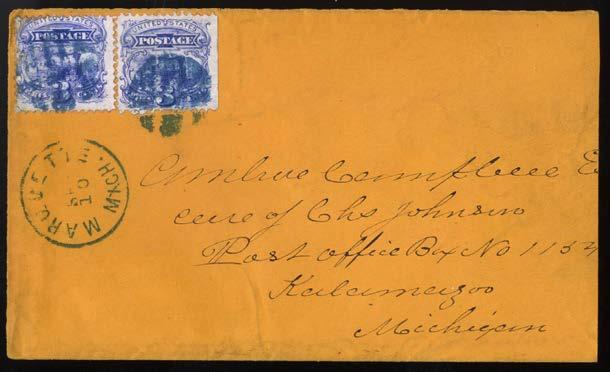 UNITED STATES UNITED STATES
POSTAGE POSTAGE
3 3
MARQUETTE MICH.
10
Ambrose Campbell E
care of Chs Johnson
Post office Box No 1154
Kalamazoo
Michigan